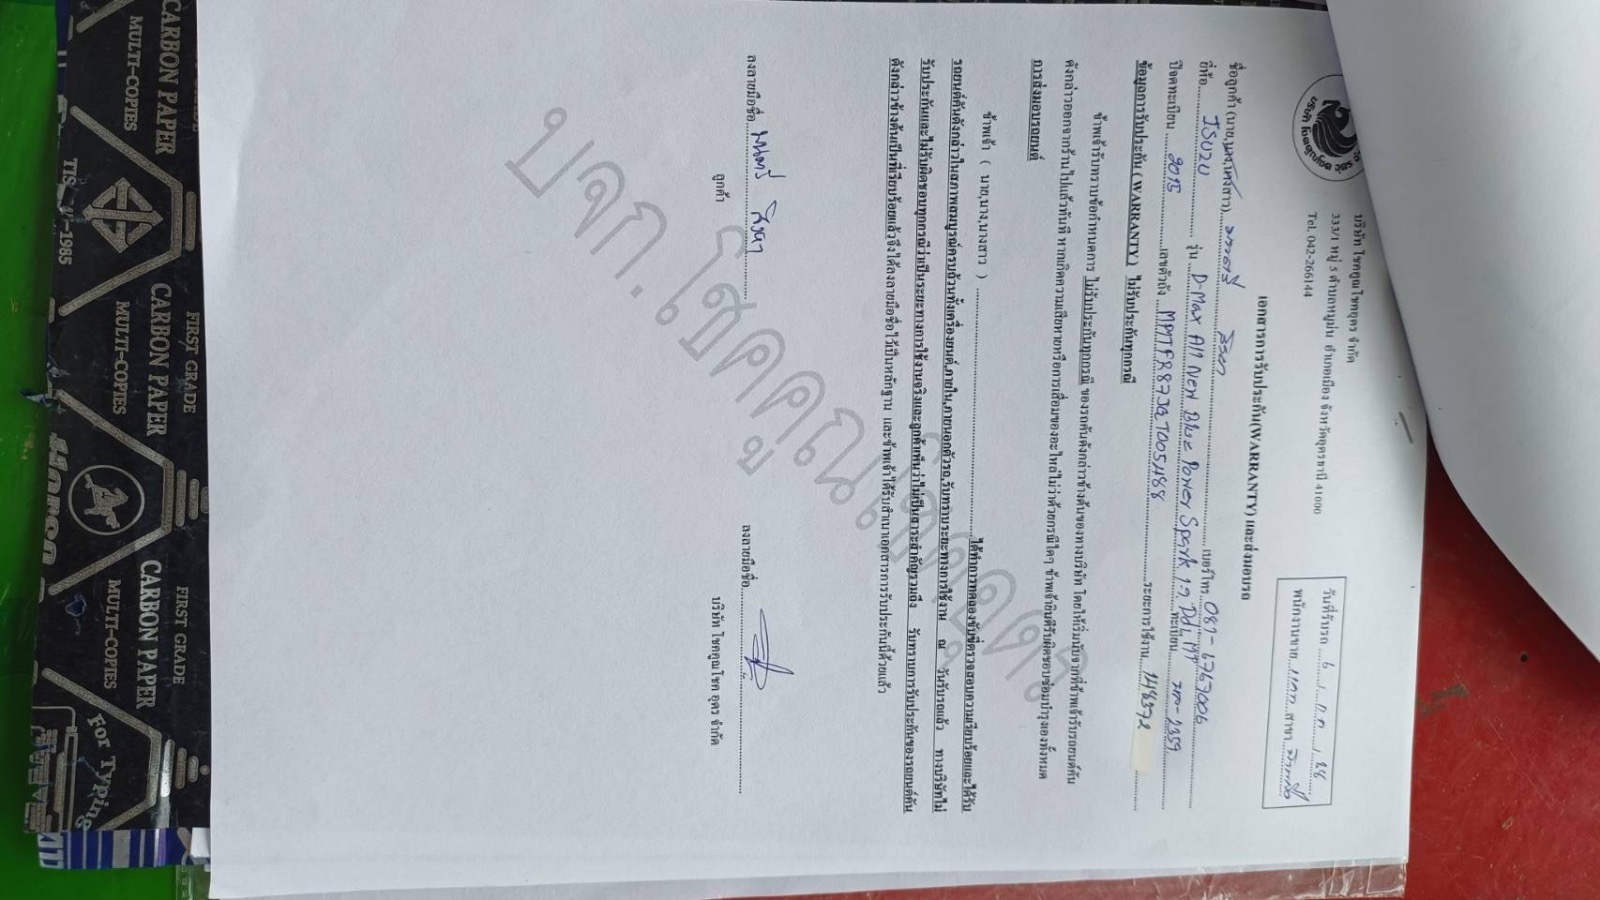 บริษัท โชคคูณโชคอุดร จำกัด
333/1 หมู่ 5 ตำบลหมูม่น อำเภอเมือง จังหวัดอุดรธานี 41000
Tel. 042-266144
วันที่รับรถ 6 / ก.ค / 28
พนักงานขาย สาขา
เอกสารการรับประกัน(WARRANTY) และส่งมอบรถ
ชื่อลูกค้า (นาย,นาง,นางสาว) เบอร์โทร 087-6767006
ยี่ห้อ ISUZU รุ่น D-Max All New Blue Power Spark 1.9 Ddi, MT ทะเบียน
ปีจดทะเบียน เลขตัวถัง ระยะการใช้งาน 148372
ข้อมูลการรับประกัน ( WARRANTY ) ไม่รับประกันทุกกรณี
ข้าพเจ้ารับทราบข้อกำหนดการ ไม่รับประกันทุกกรณี ของรถคันดังกล่าวข้างต้นของทางบริษัท โดยให้เริ่มนับจากที่ข้าพเจ้ารับรถยนต์คัน
ดังกล่าวออกจากร้านไปแล้วทันที หากเกิดความเสียหายหรือการเสื่อมของอะไหล่ไม่ว่าด้วยกรณีใดๆ ข้าพเจ้ายินดีรับผิดชอบซ่อมบำรุงเองทั้งหมด
การส่งมอบรถยนต์
ข้าพเจ้า ( นาย,นาง,นางสาว ) ได้ทำการทดลองขับขี่ตรวจสอบความเรียบร้อยและได้รับ
รถยนต์คันดังกล่าวในสภาพสมบูรณ์ครบถ้วนทั้งเครื่องยนต์,ภายใน,ภายนอกตัวรถ,รับทราบระยะทางการใช้งาน ณ วันรับรถแล้ว ทางบริษัทไม่
รับประกันและไม่รับผิดชอบทุกกรณีว่าเป็นระยะทางการใช้งานจริงและลูกค้าเห็นว่าไม่เป็นสาระสำคัญรวมถึง รับทราบการรับประกันของรถยนต์คัน
ดังกล่าวข้างต้นเป็นที่เรียบร้อยแล้วจึงได้ลงลายมือชื่อไว้เป็นหลักฐาน และข้าพเจ้าได้รับสำเนาเอกสารการรับประกันนี้ด้วยแล้ว
ลงลายมือชื่อ ลงลายมือชื่อ
ลูกค้า บริษัท โชคคูณโชค อุดร จำกัด
บจก.โชคคูณโชคอุดร
FIRST GRADE
CARBON PAPER
MULTI-COPIES
TIS
-1985
FIRST GRADE
CARBON PAPER
MULTI-COPIES
FIRST GRADE
CARBON PAPER
MULTI-COPIES
For Typing